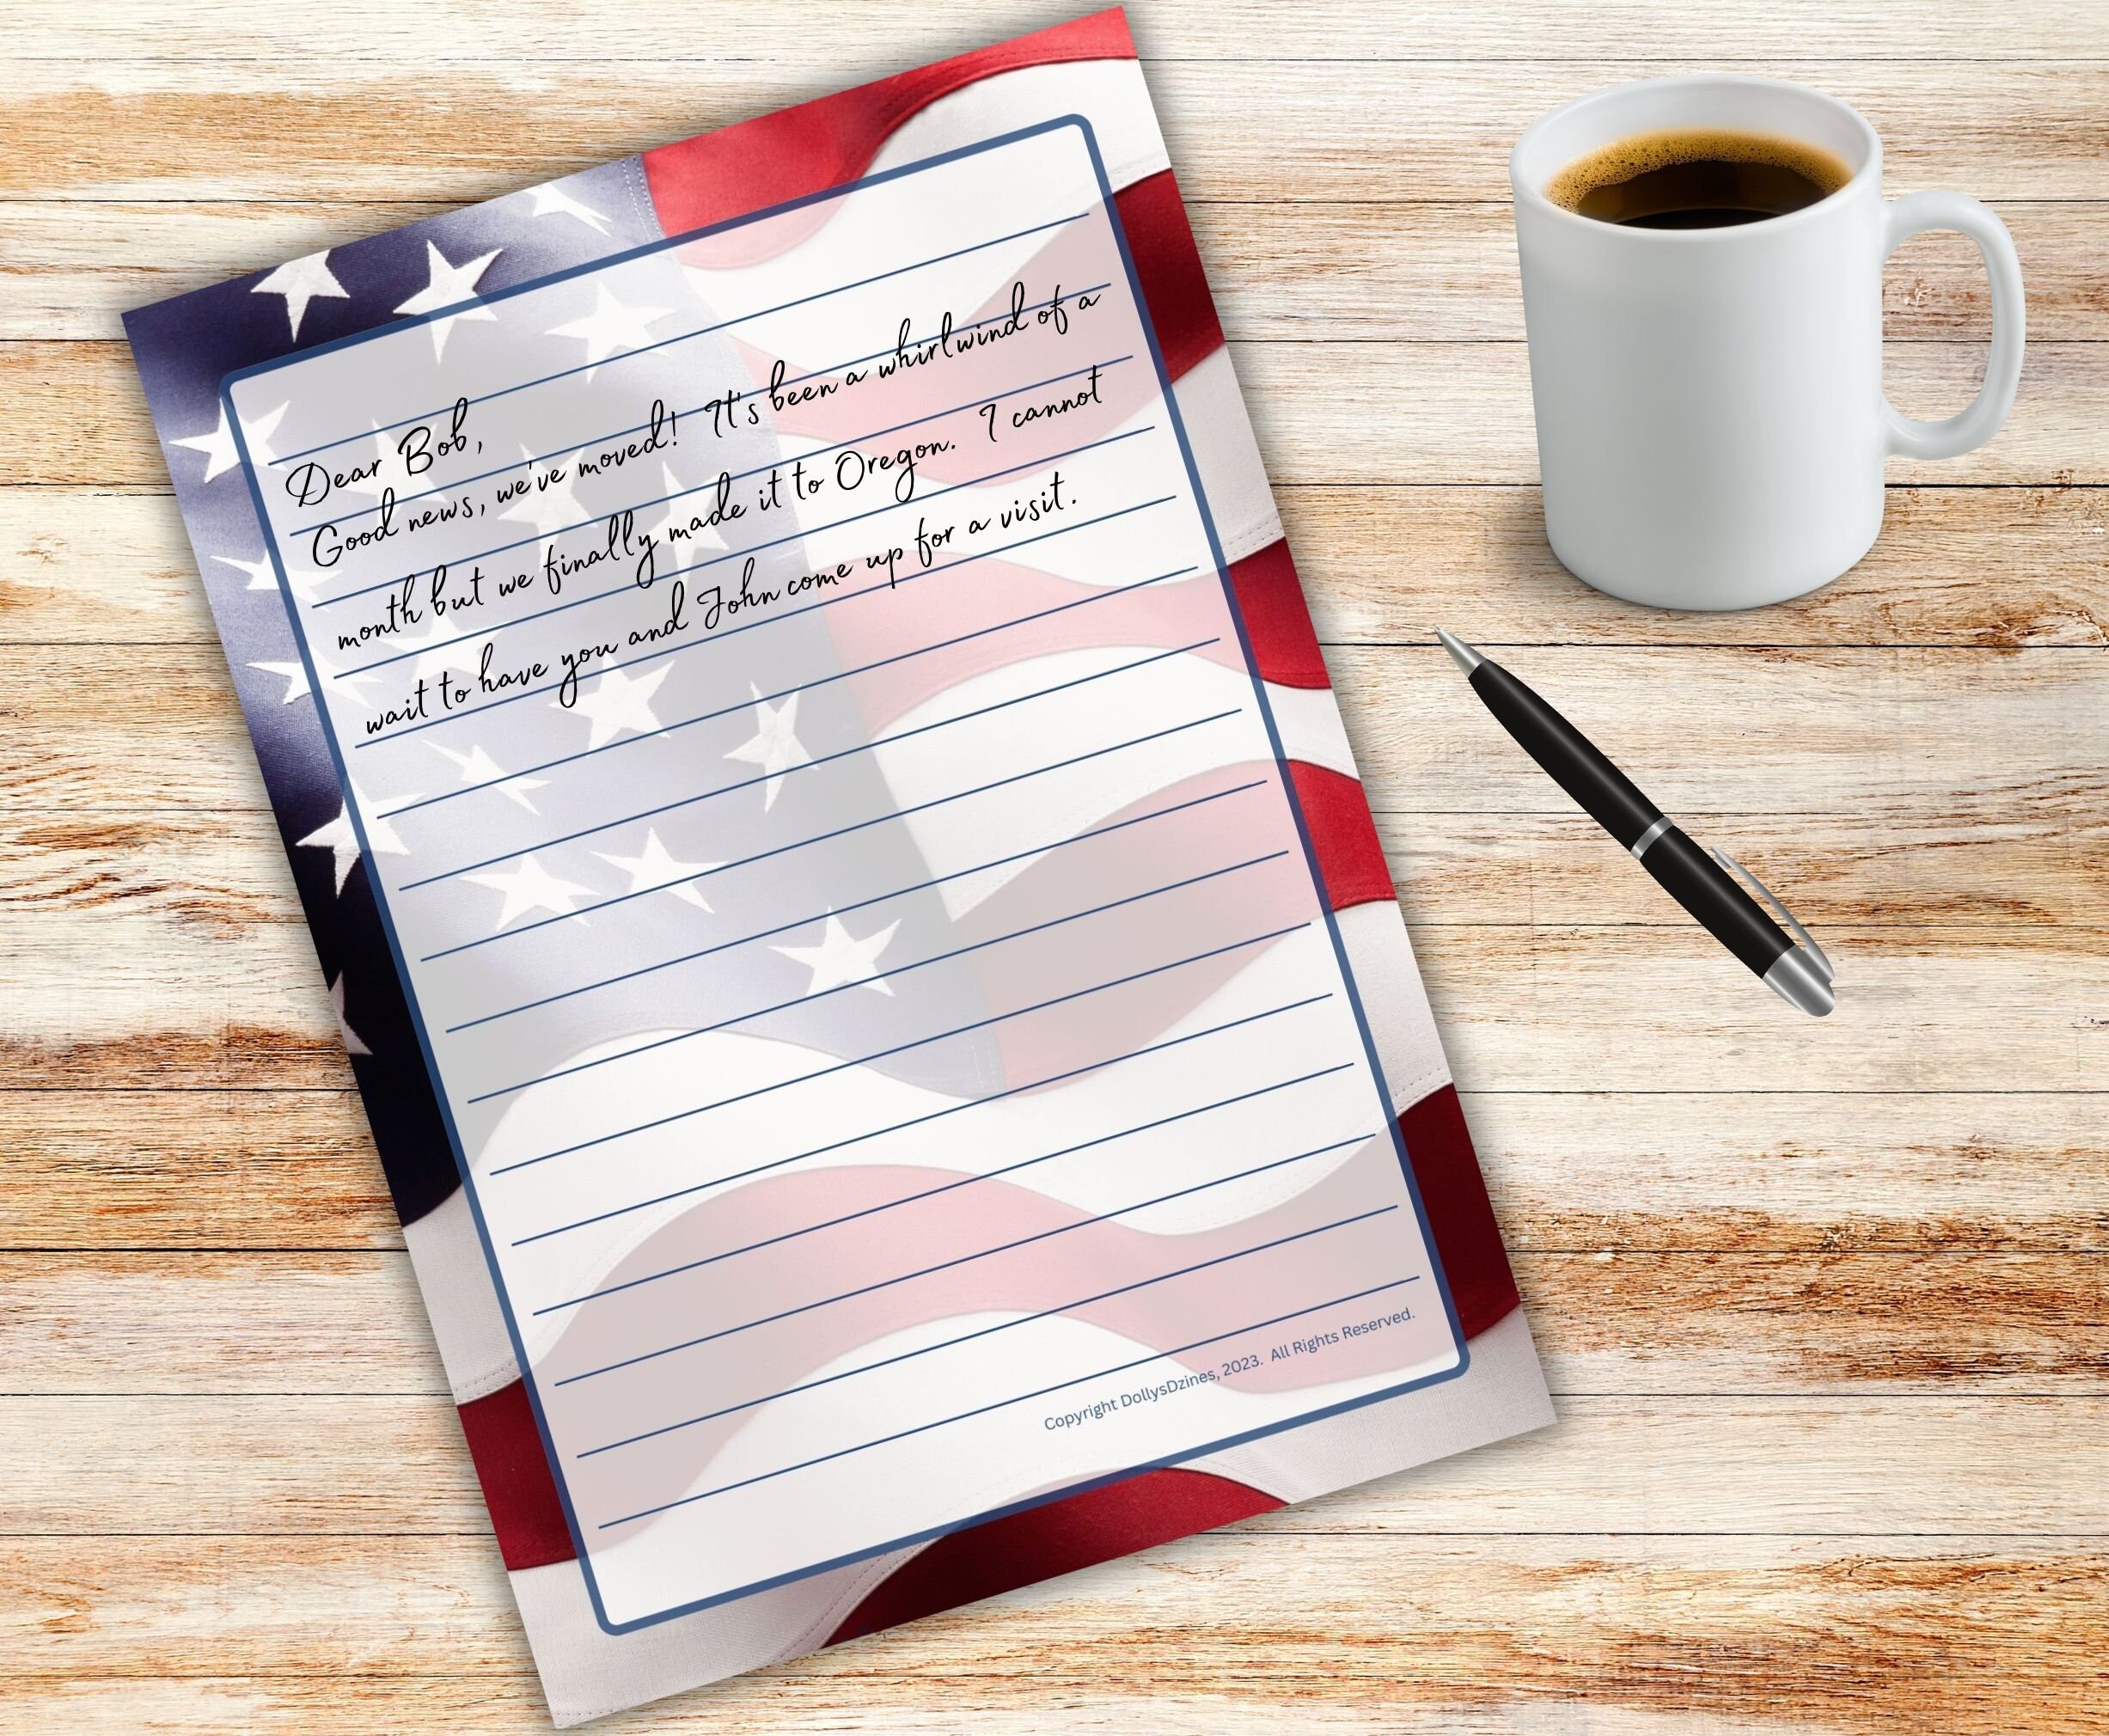 Dear Bob,
Good news, we've moved! It's been a whirlwind of a
month but we finally made it to Oregon. I cannot
wait to have you and John come up for a visit.
Copyright DollysDzines, 2023. All Rights Reserved.